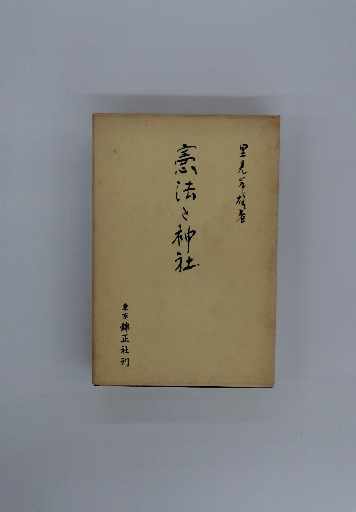 里見岸雄著
憲法と神社
東京 錦正社刊